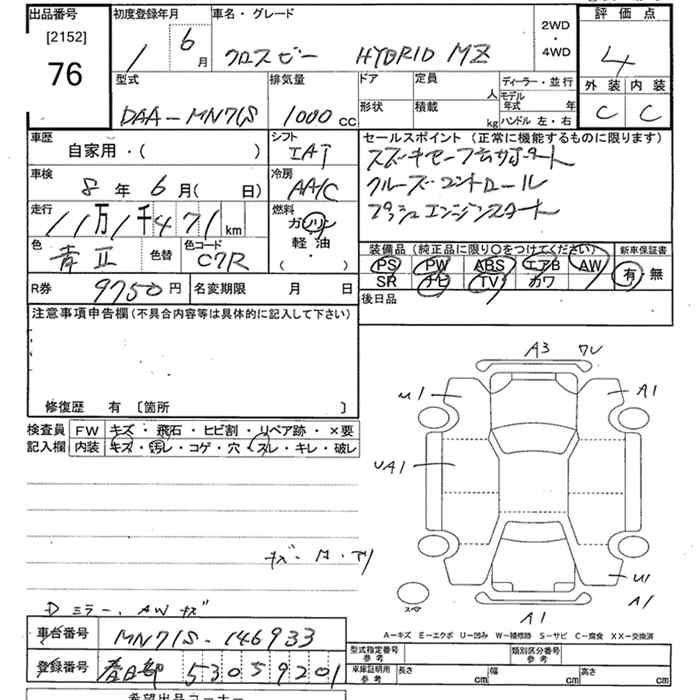 出品番号
[2152]
76
初度登録年月
1 6 月
車名・グレード
クロスビー HYBRID MZ
2WD
・
4WD
評価点
4
外装 内装
C C
型式
DAA-MN71S
排気量
1000 cc
ドア
定員
人
形状
積載
kg
ディーラー・並行
モデル
年式 年
ハンドル 左・右
車歴
自家用・( )
シフト
IAT
車検
8 年 6 月( 日)
冷房
AA/C
走行
11万1千471 km
燃料
ガソリン
軽油
( ・ )
色
青
色替
色コード
C7R
R券
9750円
名変期限 月 日
セールスポイント (正常に機能するものに限ります)
スズキセーフティサポート
クルーズコントロール
プッシュエンジンスタート
装備品(純正品に限り〇をつけてください)
新車保証書
PS PW ABS エアB AW
SR ナビ TV カワ
有・無
後日品
注意事項申告欄(不具合内容等は具体的に記入して下さい)
修復歴 有 〔箇所 〕
検査員
記入欄
FW キズ・飛石・ヒビ割・リペア跡・×要
内装 キズ・汚レ・コゲ・穴・スレ・キレ・破レ
Dミラー、AWキズ
A3 ワレ
U1
A1
UA1
U1
A1
A1
スペア
A-キズ E-エクボ U-凹み W-補修跡 S-サビ C-腐食 XX-交換済
車台番号
MN71S-146933
登録番号
春日部 530 5 9201
型式指定番号
参考
類別区分番号
参考
車庫証明用
参考
長さ cm
幅 cm
高さ cm
希望出品コーナー